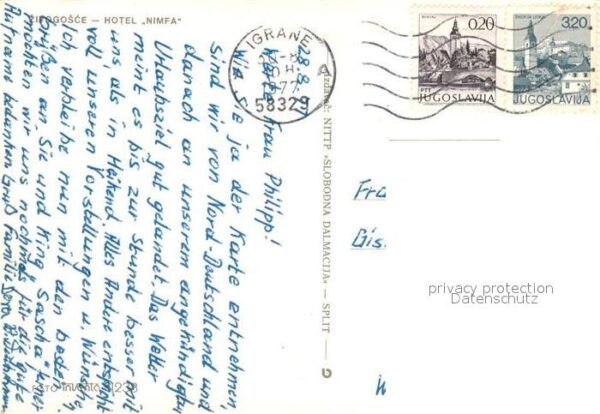 ŽIVOGOŠĆE — HOTEL „NIMFA"
28.8.77
Liebe Frau Philipp!
Wie Sie ja der Karte entnehmen,
sind wir von Nord-Deutschland und
danach an unserem angekündigten
Urlaubsziel gut gelandet. Das Wetter
meint es bis zur Stunde besser mit
uns, als in Heikend. Alles Andere entspricht
voll unseren Vorstellungen u. Wünschen.
Ich verbleibe nun mit den besten
Grüßen an Sie und King Sascha
möchten wir uns nochmals für die gute
Aufnahme bedanken Gruß Familie
FOTO
Izdanje: NITTP »SLOBODNA DALMACIJA« — SPLIT
IGRANE
-8
77
58329
0,20
PTT
JUGOSLAVIJA
ŠKOFJA LOKA
3,20
JUGOSLAVIJA
Fra
Gis
privacy protection
Datenschutz